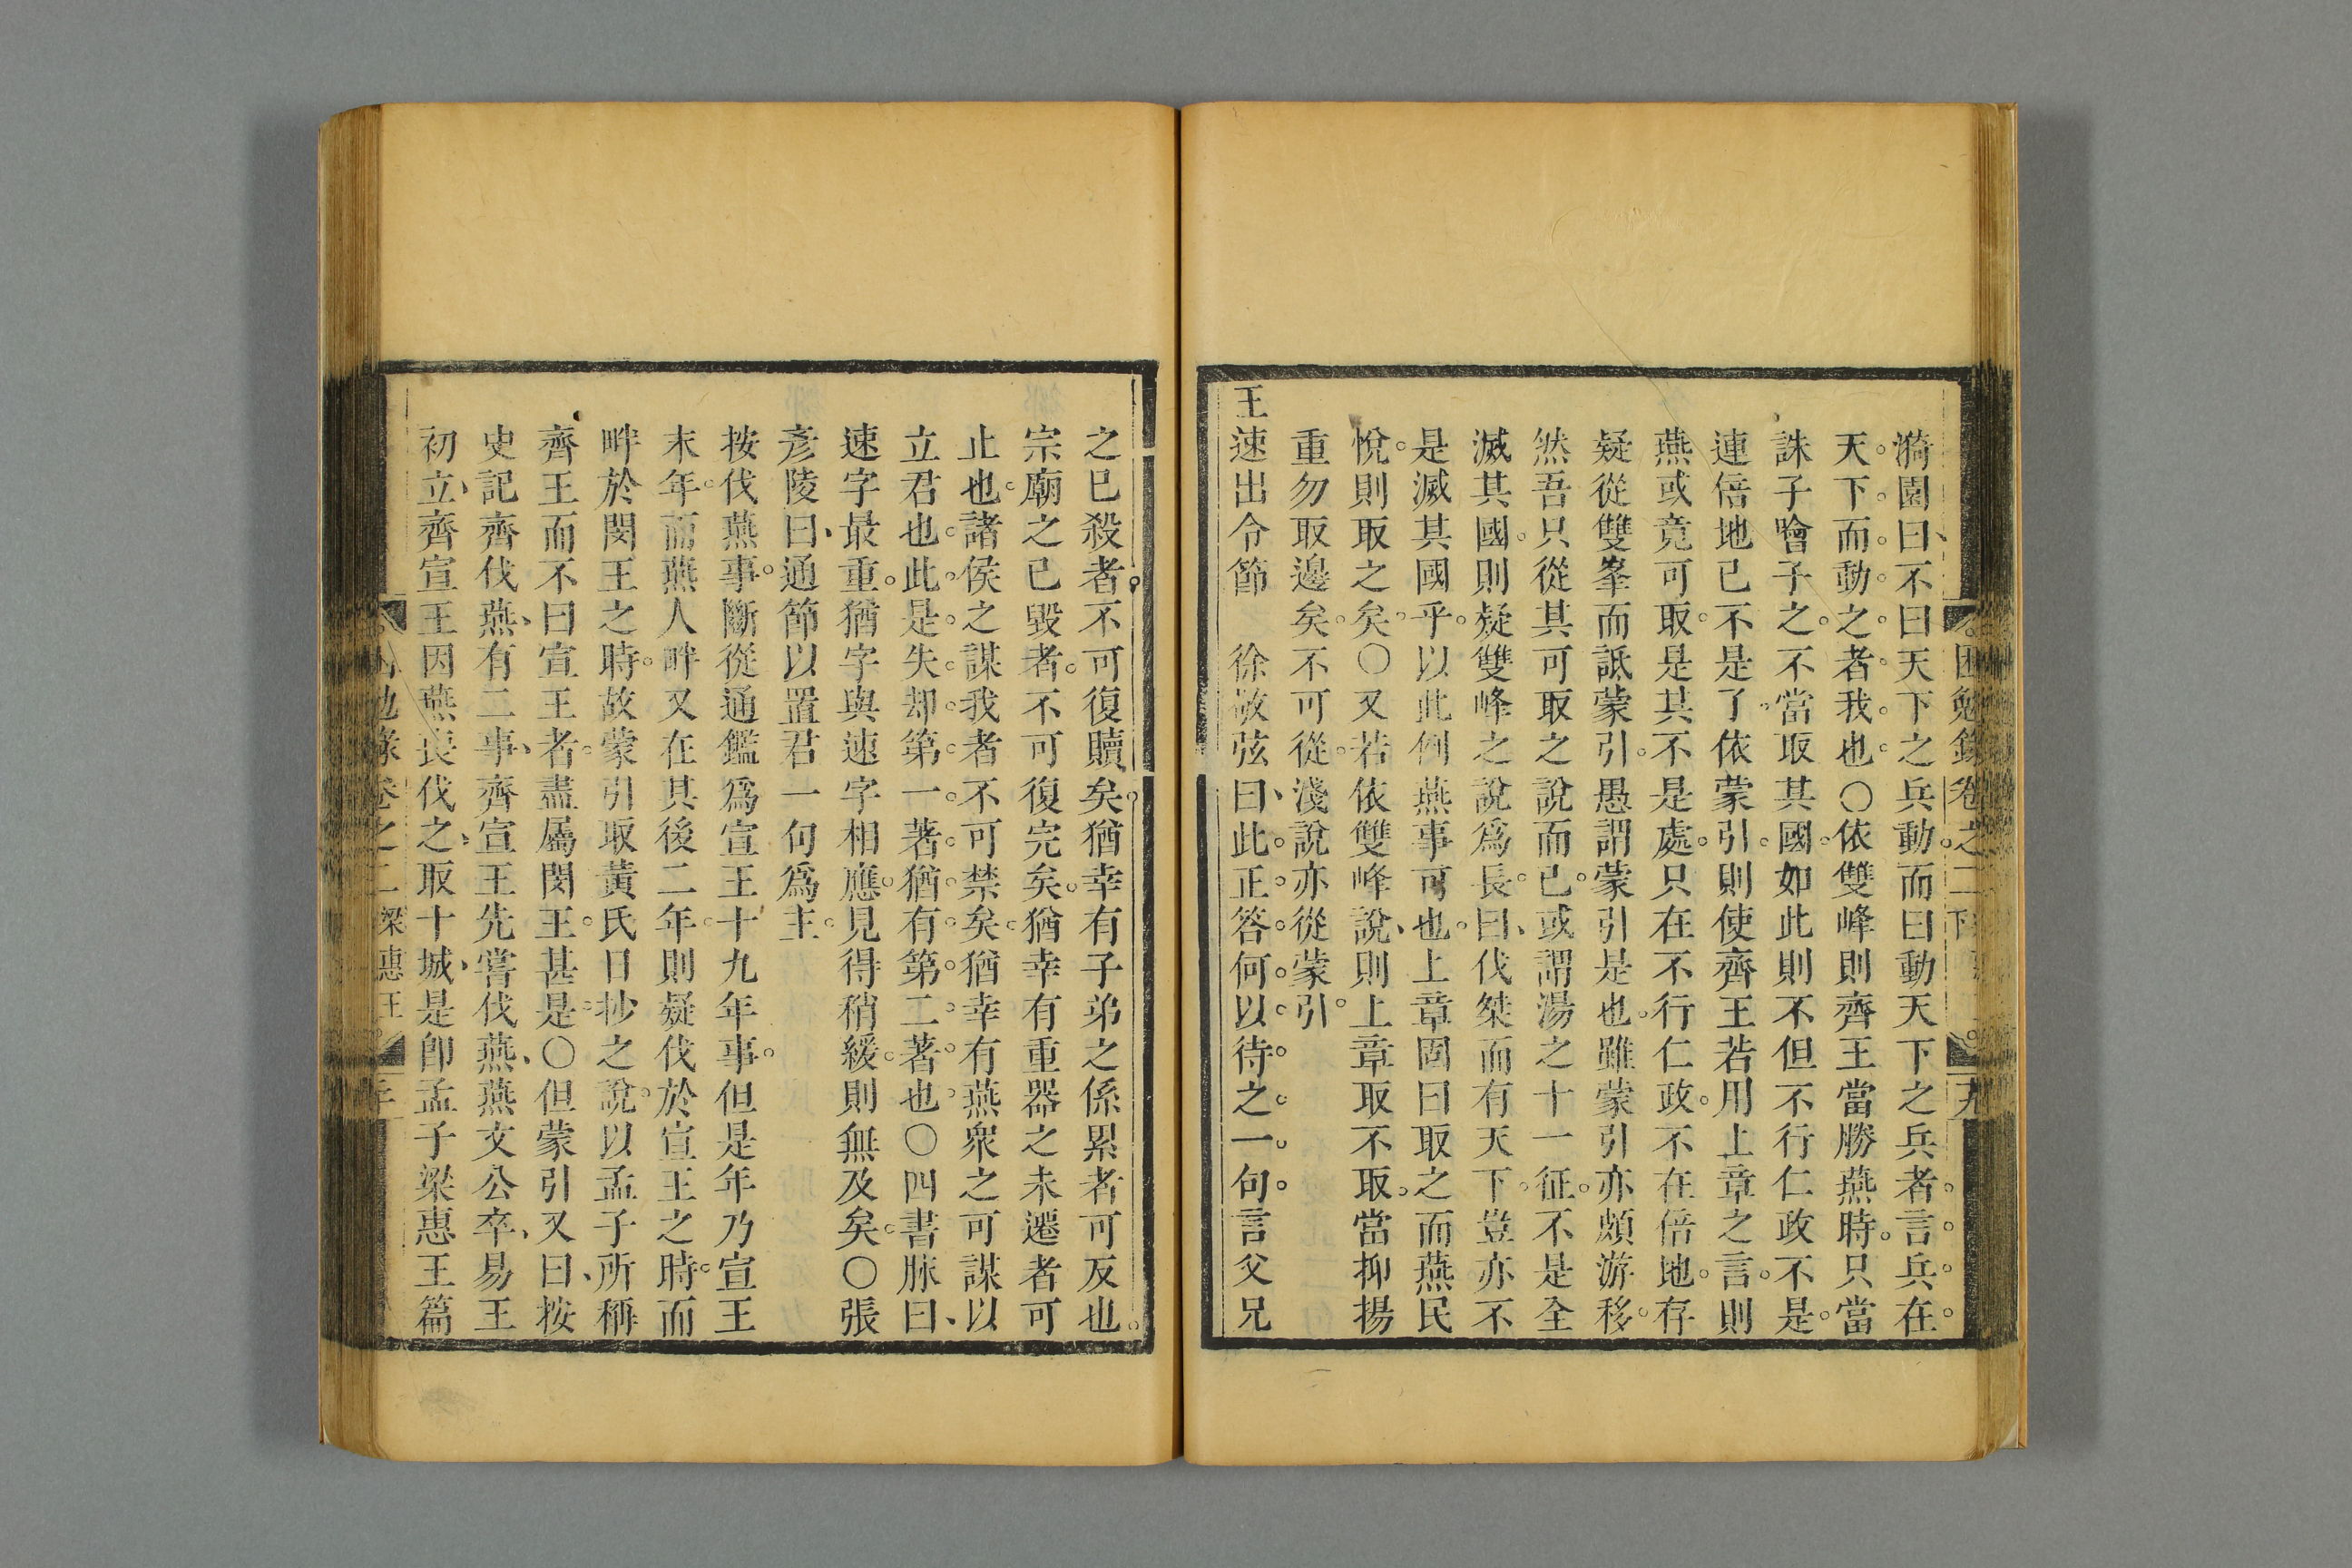 困勉錄卷之二下 九
漪園曰、不曰天下之兵動。而曰動天下之兵者。言。兵。在。
天。下。而。動。之。者。我。也。〇依雙峰則齊王當勝燕時。只當
誅子噲子之。不當取其國。如此則不但不行仁政不是。
連倍地已不是了。依蒙引。則使齊王若用上章之言。則
燕或竟可取。是其不是處。只在不行仁政。不在倍地。存
疑從雙峯而詆蒙引。愚謂蒙引是也。雖蒙引亦頗游移。
然吾只從其可取之說而已。或謂湯之十一征。不是全
滅其國。則疑雙峰之說爲長。曰、伐桀而有天下。豈亦不
是滅其國乎。以此例燕事可也。上章固曰取之而燕民
悅。則取之矣。〇又若依雙峰說、則上章取不取。當抑揚
重勿取邊矣。不可從。淺說亦從蒙引。
王速出令節 徐敬弦曰、此。正。答。何。以。待。之。一。句。言父兄
之已殺者。不可復贖矣。猶幸有子弟之係累者可反也。
宗廟之已毀者。不可復完矣。猶幸有重器之未遷者可
止也。諸侯之謀我者不可禁矣。猶幸有燕衆之可謀以
立君也。此。是。失。却。第。一。著。猶。有。第。二。著。也。〇四書脉曰、
速字最重。猶字與速字相應。見得稍緩。則無及矣。〇張
彥陵曰、通節以置君一句爲主。
按伐燕事。斷從通鑑爲宣王十九年事。但是年乃宣王
末年。而燕人畔又在其後二年。則疑伐於宣王之時。而
畔於閔王之時。故蒙引取黃氏日抄之說。以孟子所稱
齊王而不曰宣王者。盡屬閔王。甚是。〇但蒙引又曰、按
史記齊伐燕、有二事、齊宣王先嘗伐燕、燕文公卒、易王
初立、齊宣王因燕喪伐之、取十城、是卽孟子梁惠王篇
勉錄卷之二 梁惠王